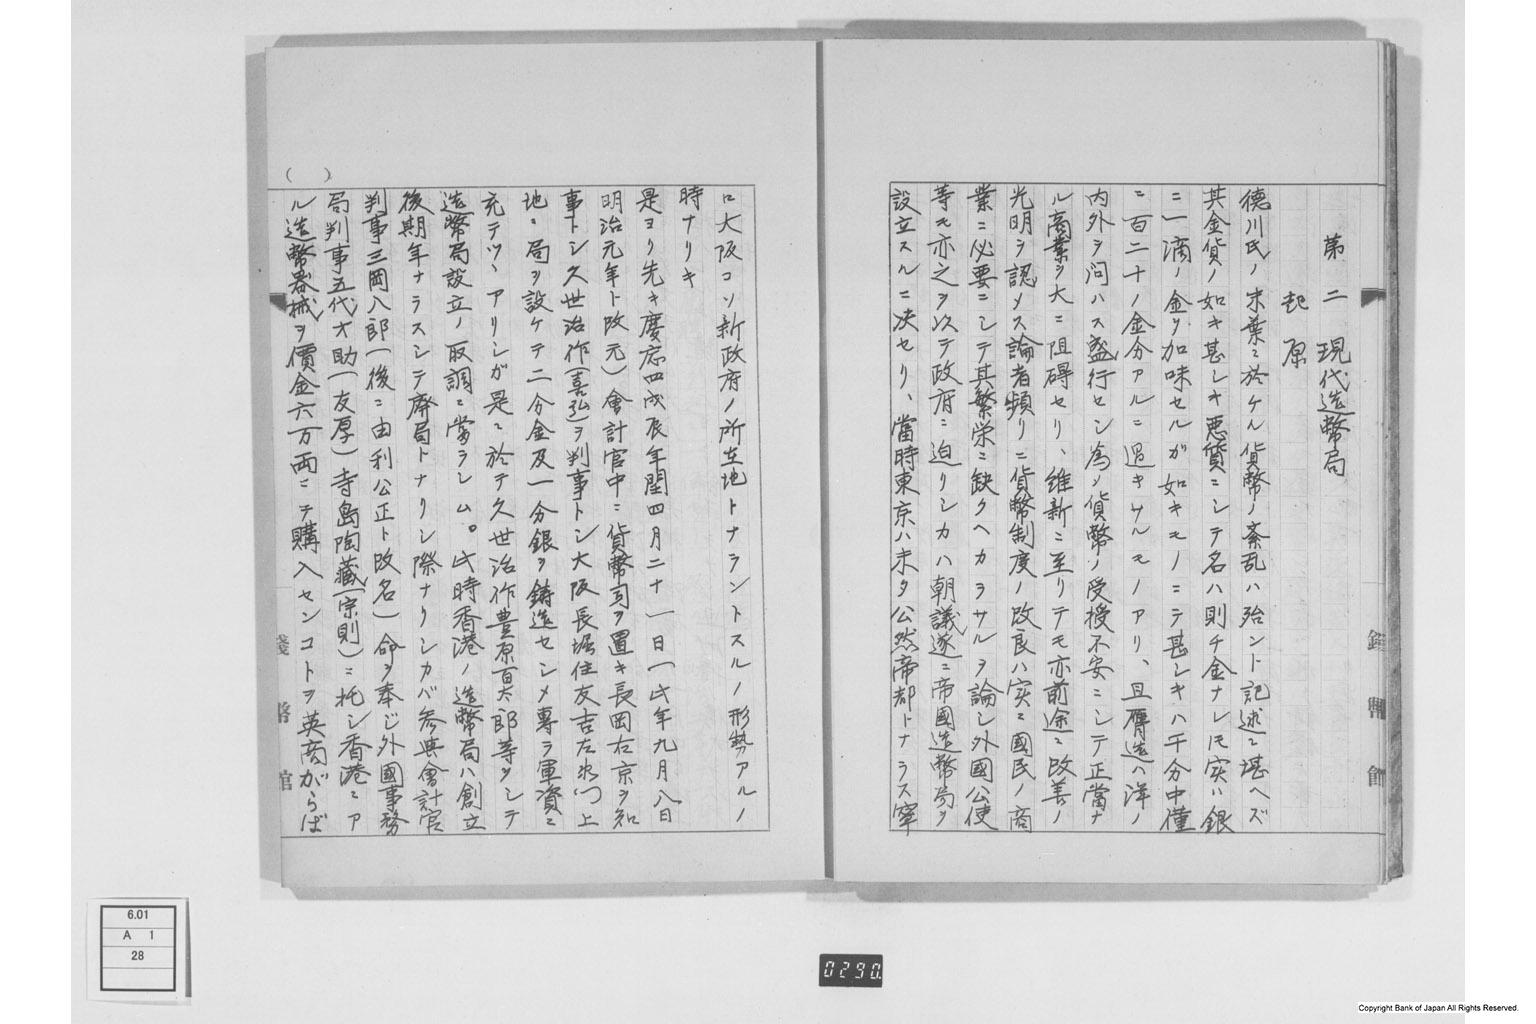 第二 現代造幣局
起原
徳川氏ノ末葉ニ於ケル貨幣ノ紊乱ハ殆ント記述ニ堪ヘズ
其金貨ノ如キ甚シキ悪質ニシテ名ハ則チ金ナレモ実ハ銀
ニ一滴ノ金ヲ加味セルガ如キモノニテ甚シキハ千分中僅
ニ百二十ノ金分アルニ過キサルモノアリ、且贋造ハ洋ノ
内外ヲ問ハス盛行セシ為メ貨幣ノ受授不安ニシテ正當ナ
ル商業ヲ大ニ阻碍セリ、維新ニ至リテモ亦前途ニ改善ノ
光明ヲ認メス論者頻リニ貨幣制度ノ改良ハ実ニ國民ノ商
業ニ必要ニシテ其繁栄ニ缺クヘカラサルヲ論シ外國公使
等モ亦之ヲ以テ政府ニ迫リシカハ朝議遂ニ帝國造幣局ヲ
設立スルニ决セリ、當時東京ハ未タ公然帝都トナラス寧
ロ大阪コソ新政府ノ所在地トナラントスルノ形勢アルノ
時ナリキ
是ヨリ先キ慶応四戊辰年閏四月二十一日(此年九月八日
明治元年ト改元)會計官中ニ貨幣司ヲ置キ長岡右京ヲ知
事トシ久世治作(喜弘)ヲ判事トシ大阪長堀住友吉左衛門上
地ニ局ヲ設ケテ二分金及一分銀ヲ鋳造セシメ專ラ軍資ニ
充テツヽアリシガ是ニ於テ久世治作豊原百太郎等ヲシテ
造幣局設立ノ取調ニ當ラシム。此時香港ノ造幣局ハ創立
後期年ナラスシテ廃局トナリシ際ナリシカバ参與會計官
判事三岡八郎(後ニ由利公正ト改名)命ヲ奉ジ外國事務
局判事五代才助(友厚)寺島陶蔵(宗則)ニ托シ香港ニア
ル造幣器械ヲ價金六万両ニテ購入センコトヲ英商がらば
( )
錢幣館
6.01
A 1
28
0290.
Copyright Bank of Japan All Rights Reserved.